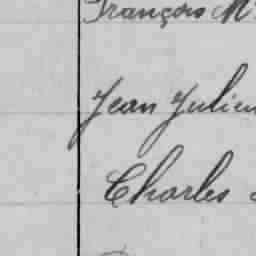 François M
Jean Julien
Charles